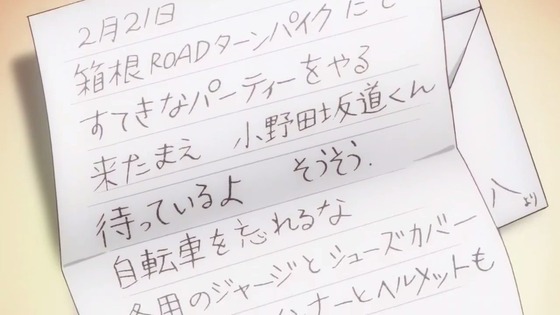 2月21日
箱根ROADターンパイクにて
すてきなパーティーをやる
来たまえ 小野田坂道くん
待っているよ そうそう.
自転車を忘れるな
冬用のジャージとシューズカバー
インナーとヘルメットも
八より